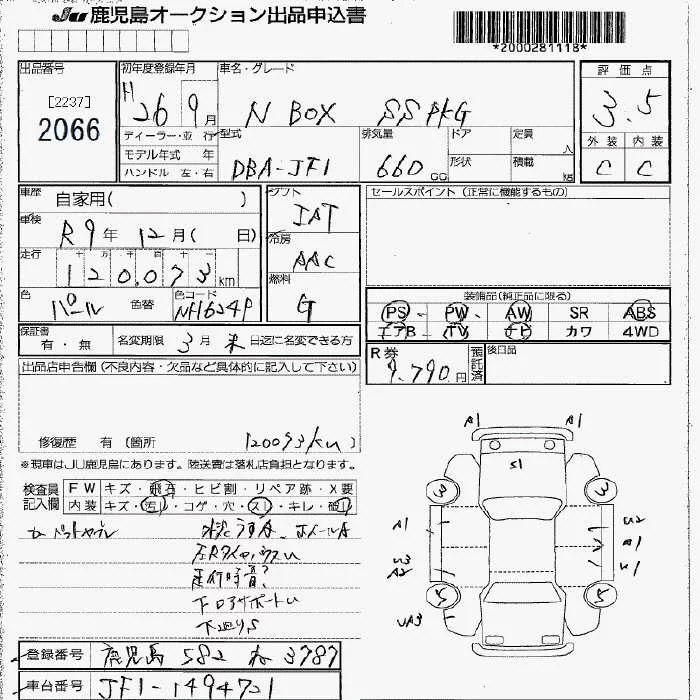 JU 鹿児島オークション出品申込書
*2000281118*
出品番号
[2237]
2066
初年度登録年月
H 26 9月
ディーラー・並行
モデル年式 年
ハンドル 左・右
車名・グレード
N BOX SS PKG
型式
DBA-JF1
排気量
660 CC
ドア
形状
定員
人
積載
kg
評価点
3.5
外装 内装
C C
車歴 自家用( )
車検
R9年 12月( 日)
走行
120,073 km
色 パール 色替
色コード
NH624P
シフト
IAT
冷房
AAC
燃料
G
セールスポイント(正常に機能するもの)
装備品(純正品に限る)
PS PW AW SR ABS
エアB TV ナビ カワ 4WD
保証書
有・無
名変期限 3月末日迄に名変できる方
R券
9,790円
預託済
後日品
出品店申告欄(不良内容・欠品など具体的に記入して下さい)
修復歴 有(箇所 120093km)
※現車はJU鹿児島にあります。陸送費は落札店負担となります。
検査員記入欄
FW キズ・飛石・ヒビ割・リペア跡・X要
内装 キズ・汚レ・コゲ・穴・スレ・キレ・破レ
走行時音?
下回りS
A1 A1
S1
3 3
A1 U2
A1
U3 A2
5 5
UA3
登録番号 鹿児島 582 3787
車台番号 JF1-1494721